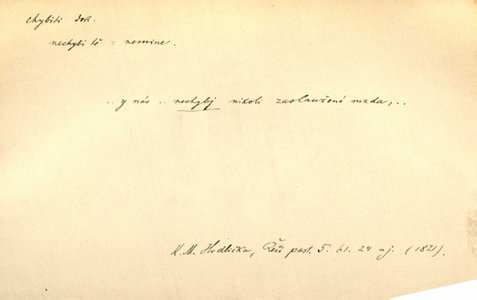 chybiti dok.
nechybí tě = nemine.
.. y nás .. nechybj nikoli zaslaužená mzda, ..
K. M. Hodička, Řeči past. 5. 61. 24 aj. (1821).